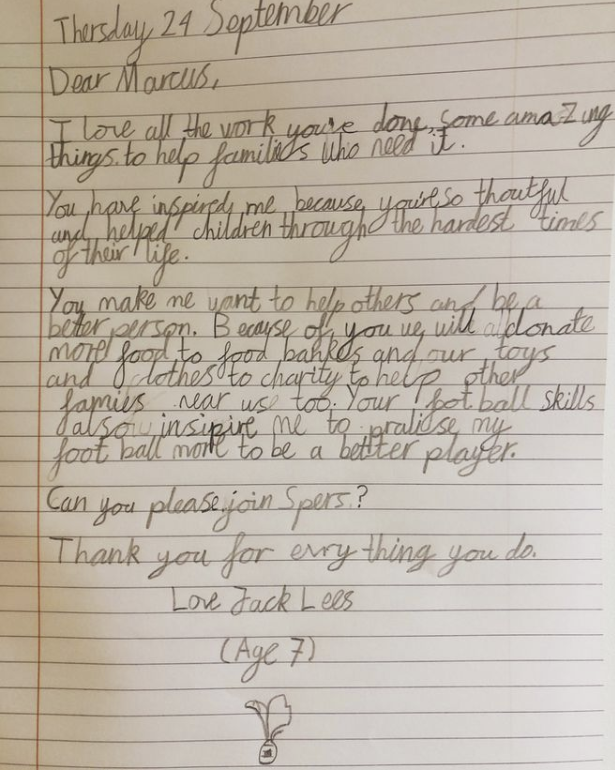 Thersday 24 September
Dear Marcus,
I love all the work you've done, some amazing
things. to help families who need it.
You have inspired me because you're so thoutful
and helped children through the hardest times
of their life.
You make me want to help others and be a
better person. Because of you we will donate
more food to food bankes and our toys
and clothes to charity to help other
famies near us too. Your foot ball skills
also insipire me to pratise my
foot ball more to be a better player.
Can you please join Spers.?
Thank you for evry thing you do.
Love Jack Lees
(Age 7)